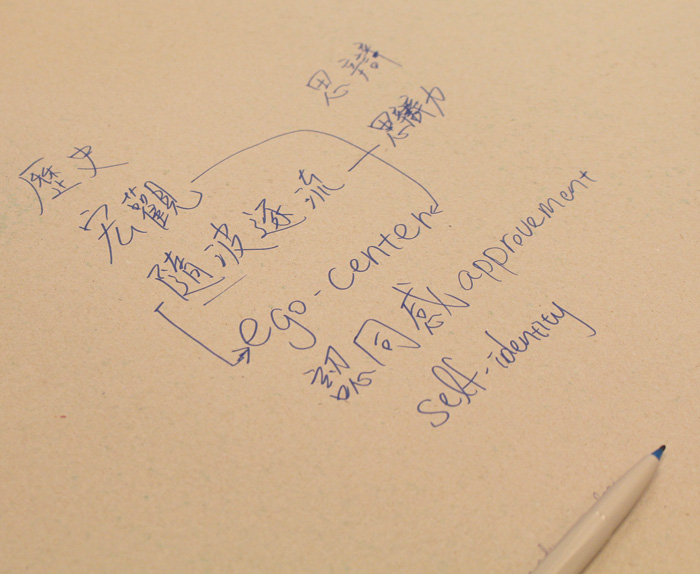 思辨
思辨力
歷史
宏觀
隨波逐流
ego-center
認同感 approvement
self-identity